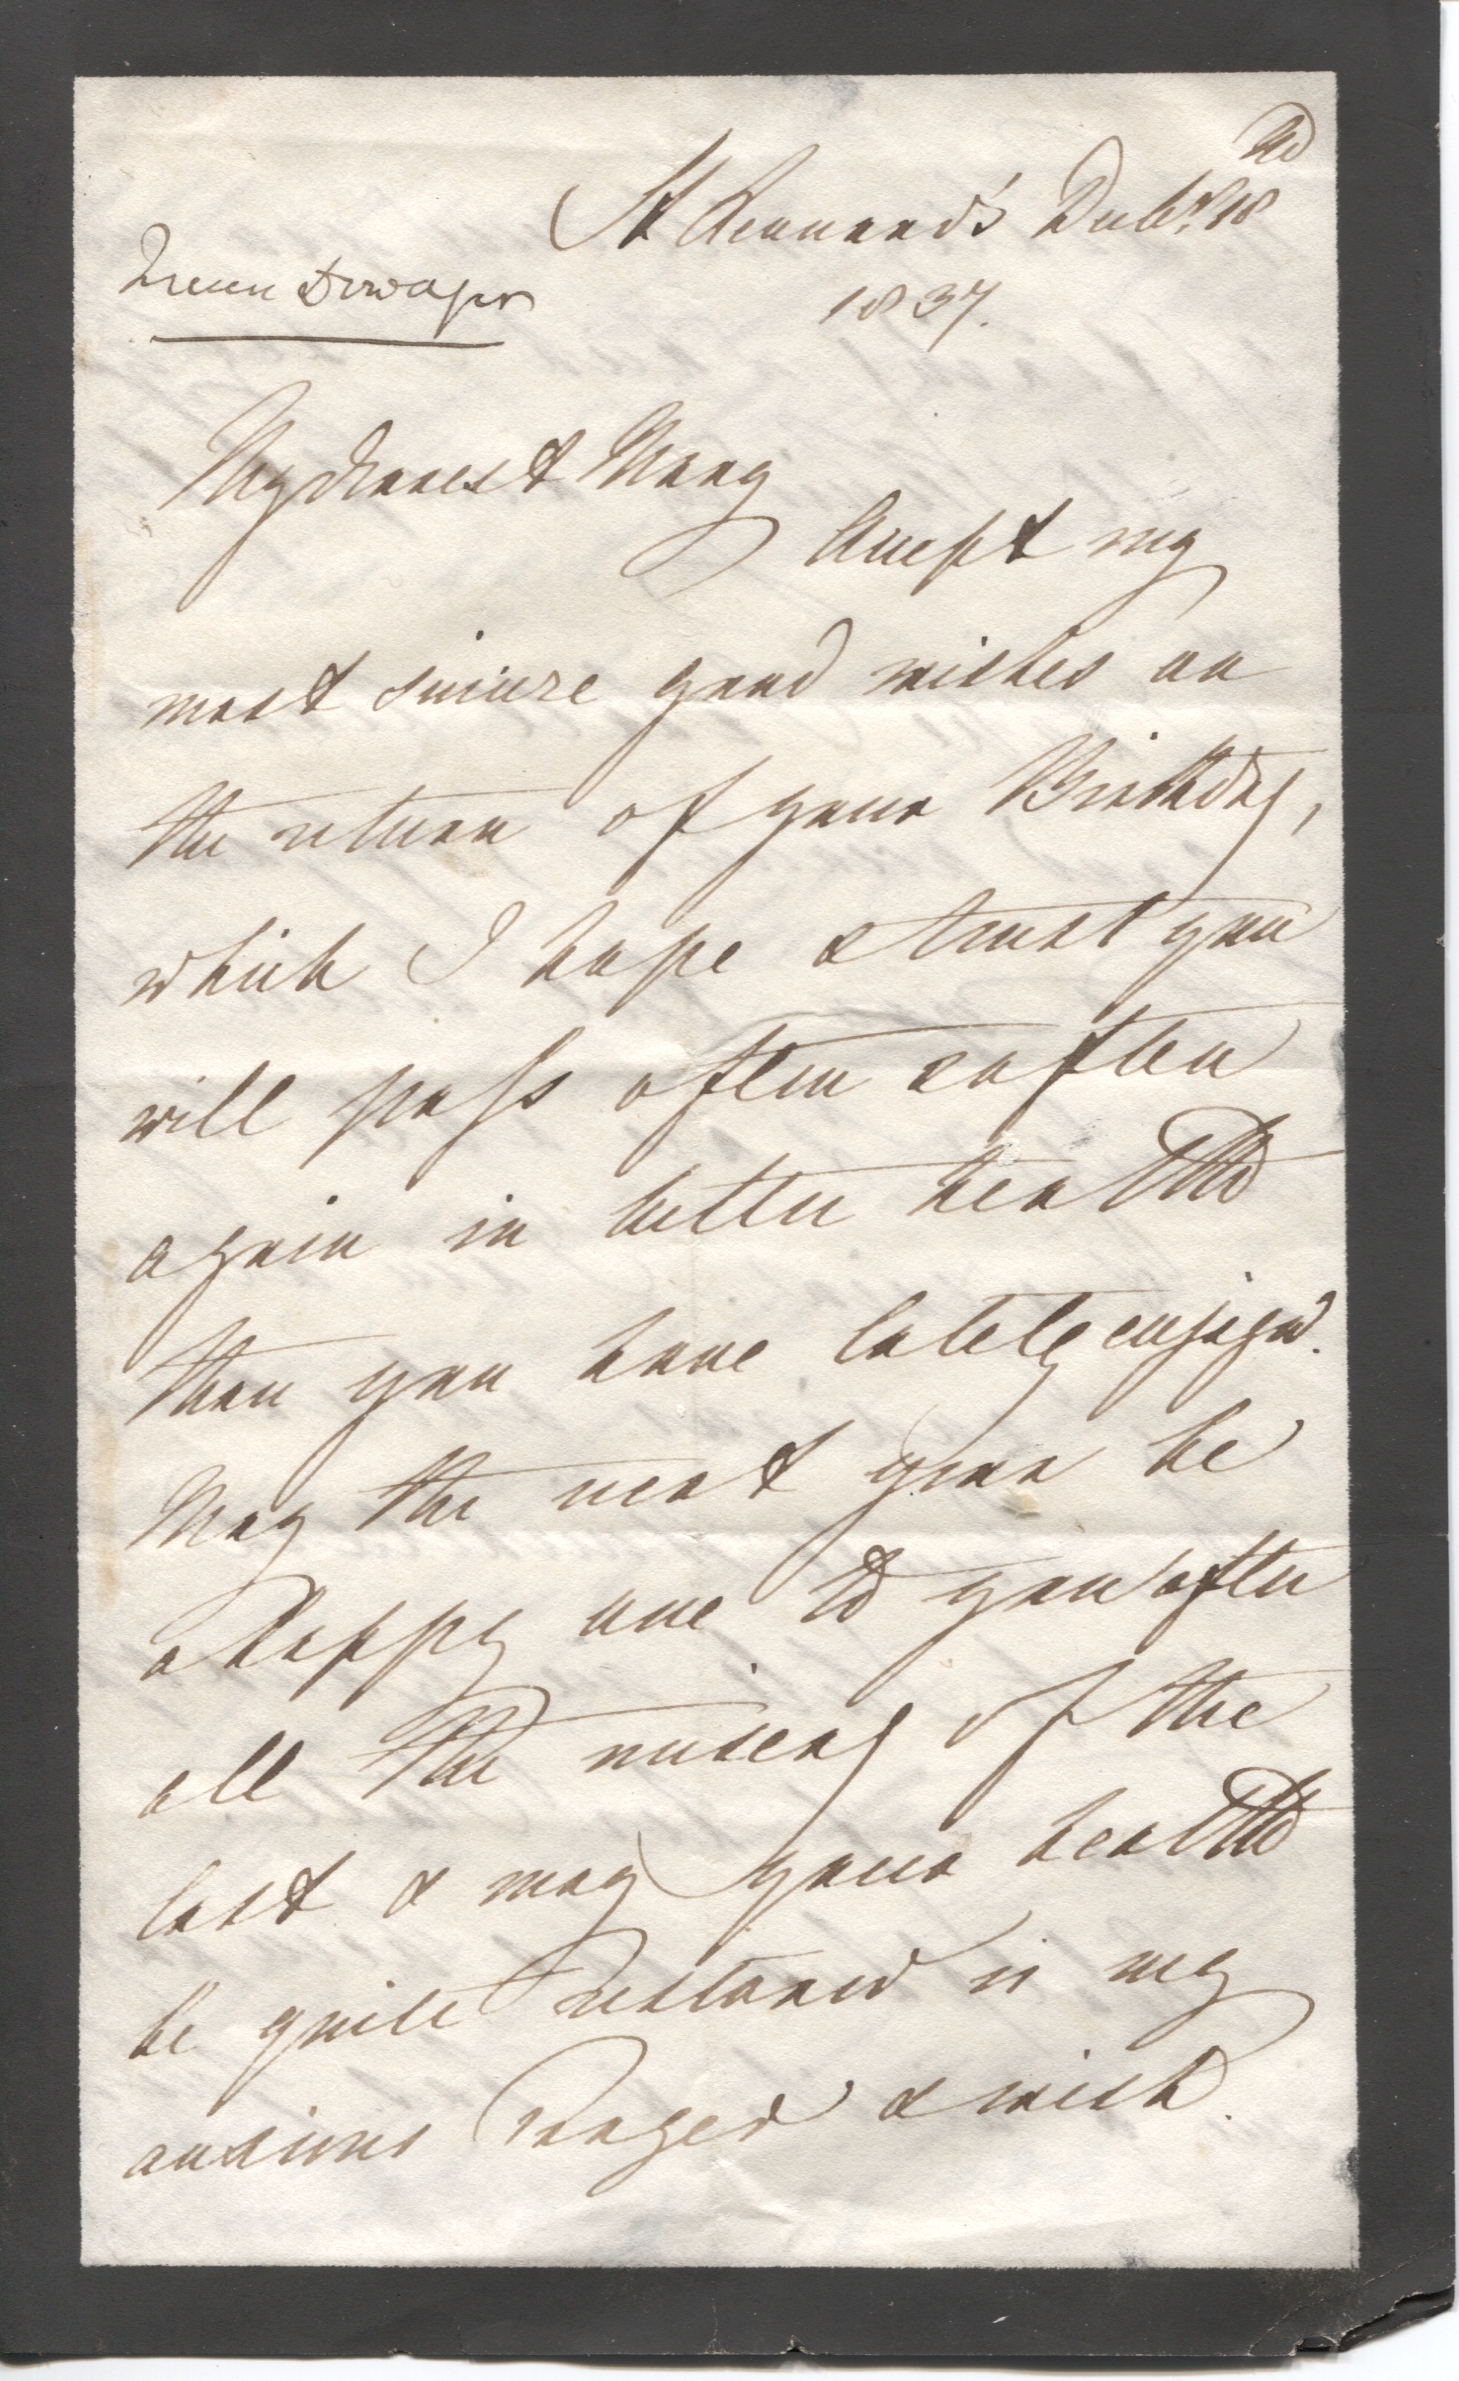 St Leonard's Decbr 18th
Queen Dowager
1837.
My dearest Mary
Accept my
most sincere good wishes on
the return of your Birthday,
which I hope & trust you
will pass often & often
again in better health
than you have lately enjoyed.
May the next year be
a happy one to you after
all the misery of the
last & may your health
be quite restored is my
anxious prayer & wish.